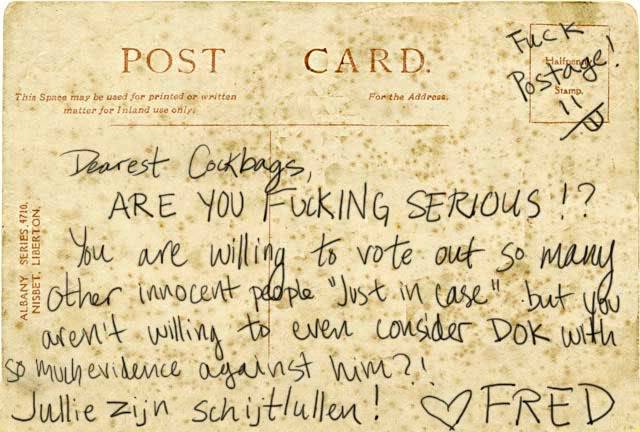 POST CARD.
Fuck
Postage!
Halfpenny
Stamp.
!!
This Space may be used for printed or written
matter for Inland use only.
For the Address.
ALBANY SERIES 4710.
NISBET, LIBERTON.
Dearest Cockbags,
ARE YOU FUCKING SERIOUS!?
You are willing to vote out so many
other innocent people "Just in case" but you
aren't willing to even consider DOK with
so much evidence against him?!
Jullie zijn schijtlullen! ♡ FRED